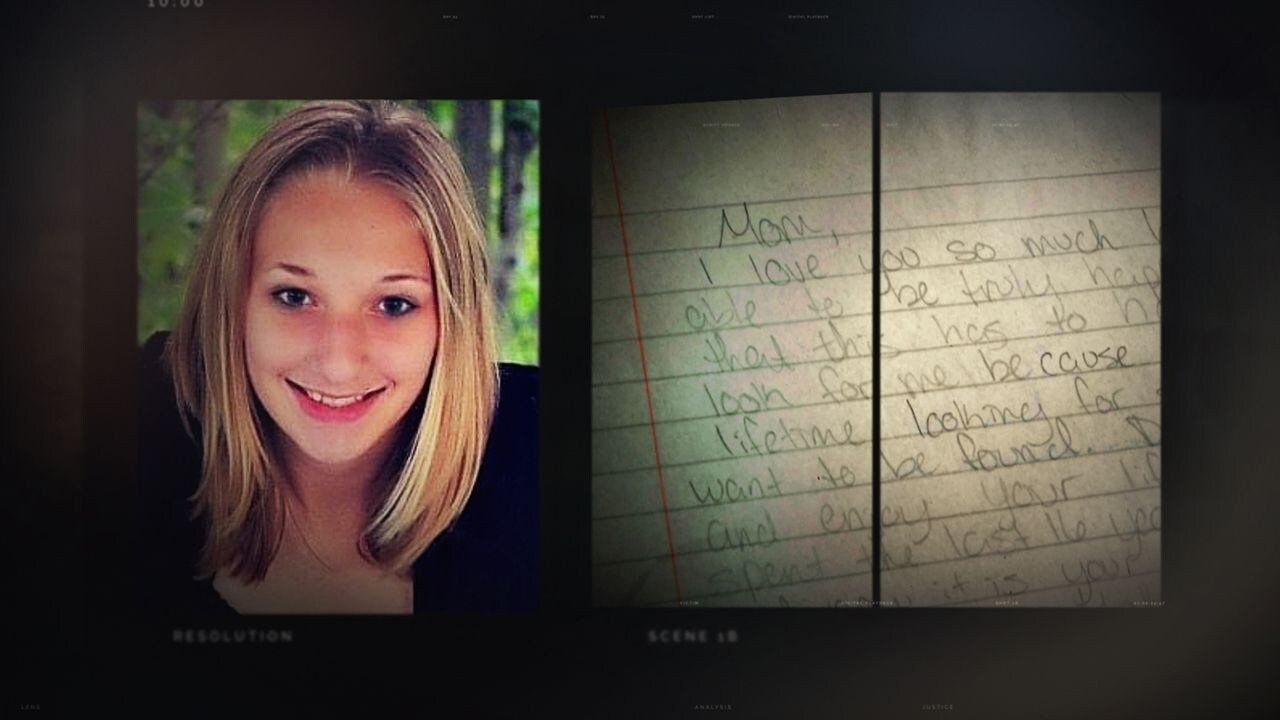 10:00
DIGITAL PLAYBACK
Mom,
I love you so much I
able to be truly hap
that this has to h
look for me because
lifetime looking for
want to be found. D
and enjoy your lif
spent the last 16 yea
it is your
VICTIM
DIGITAL PLAYBACK
RESOLUTION
SCENE 1B
LENS
ANALYSIS
JUSTICE